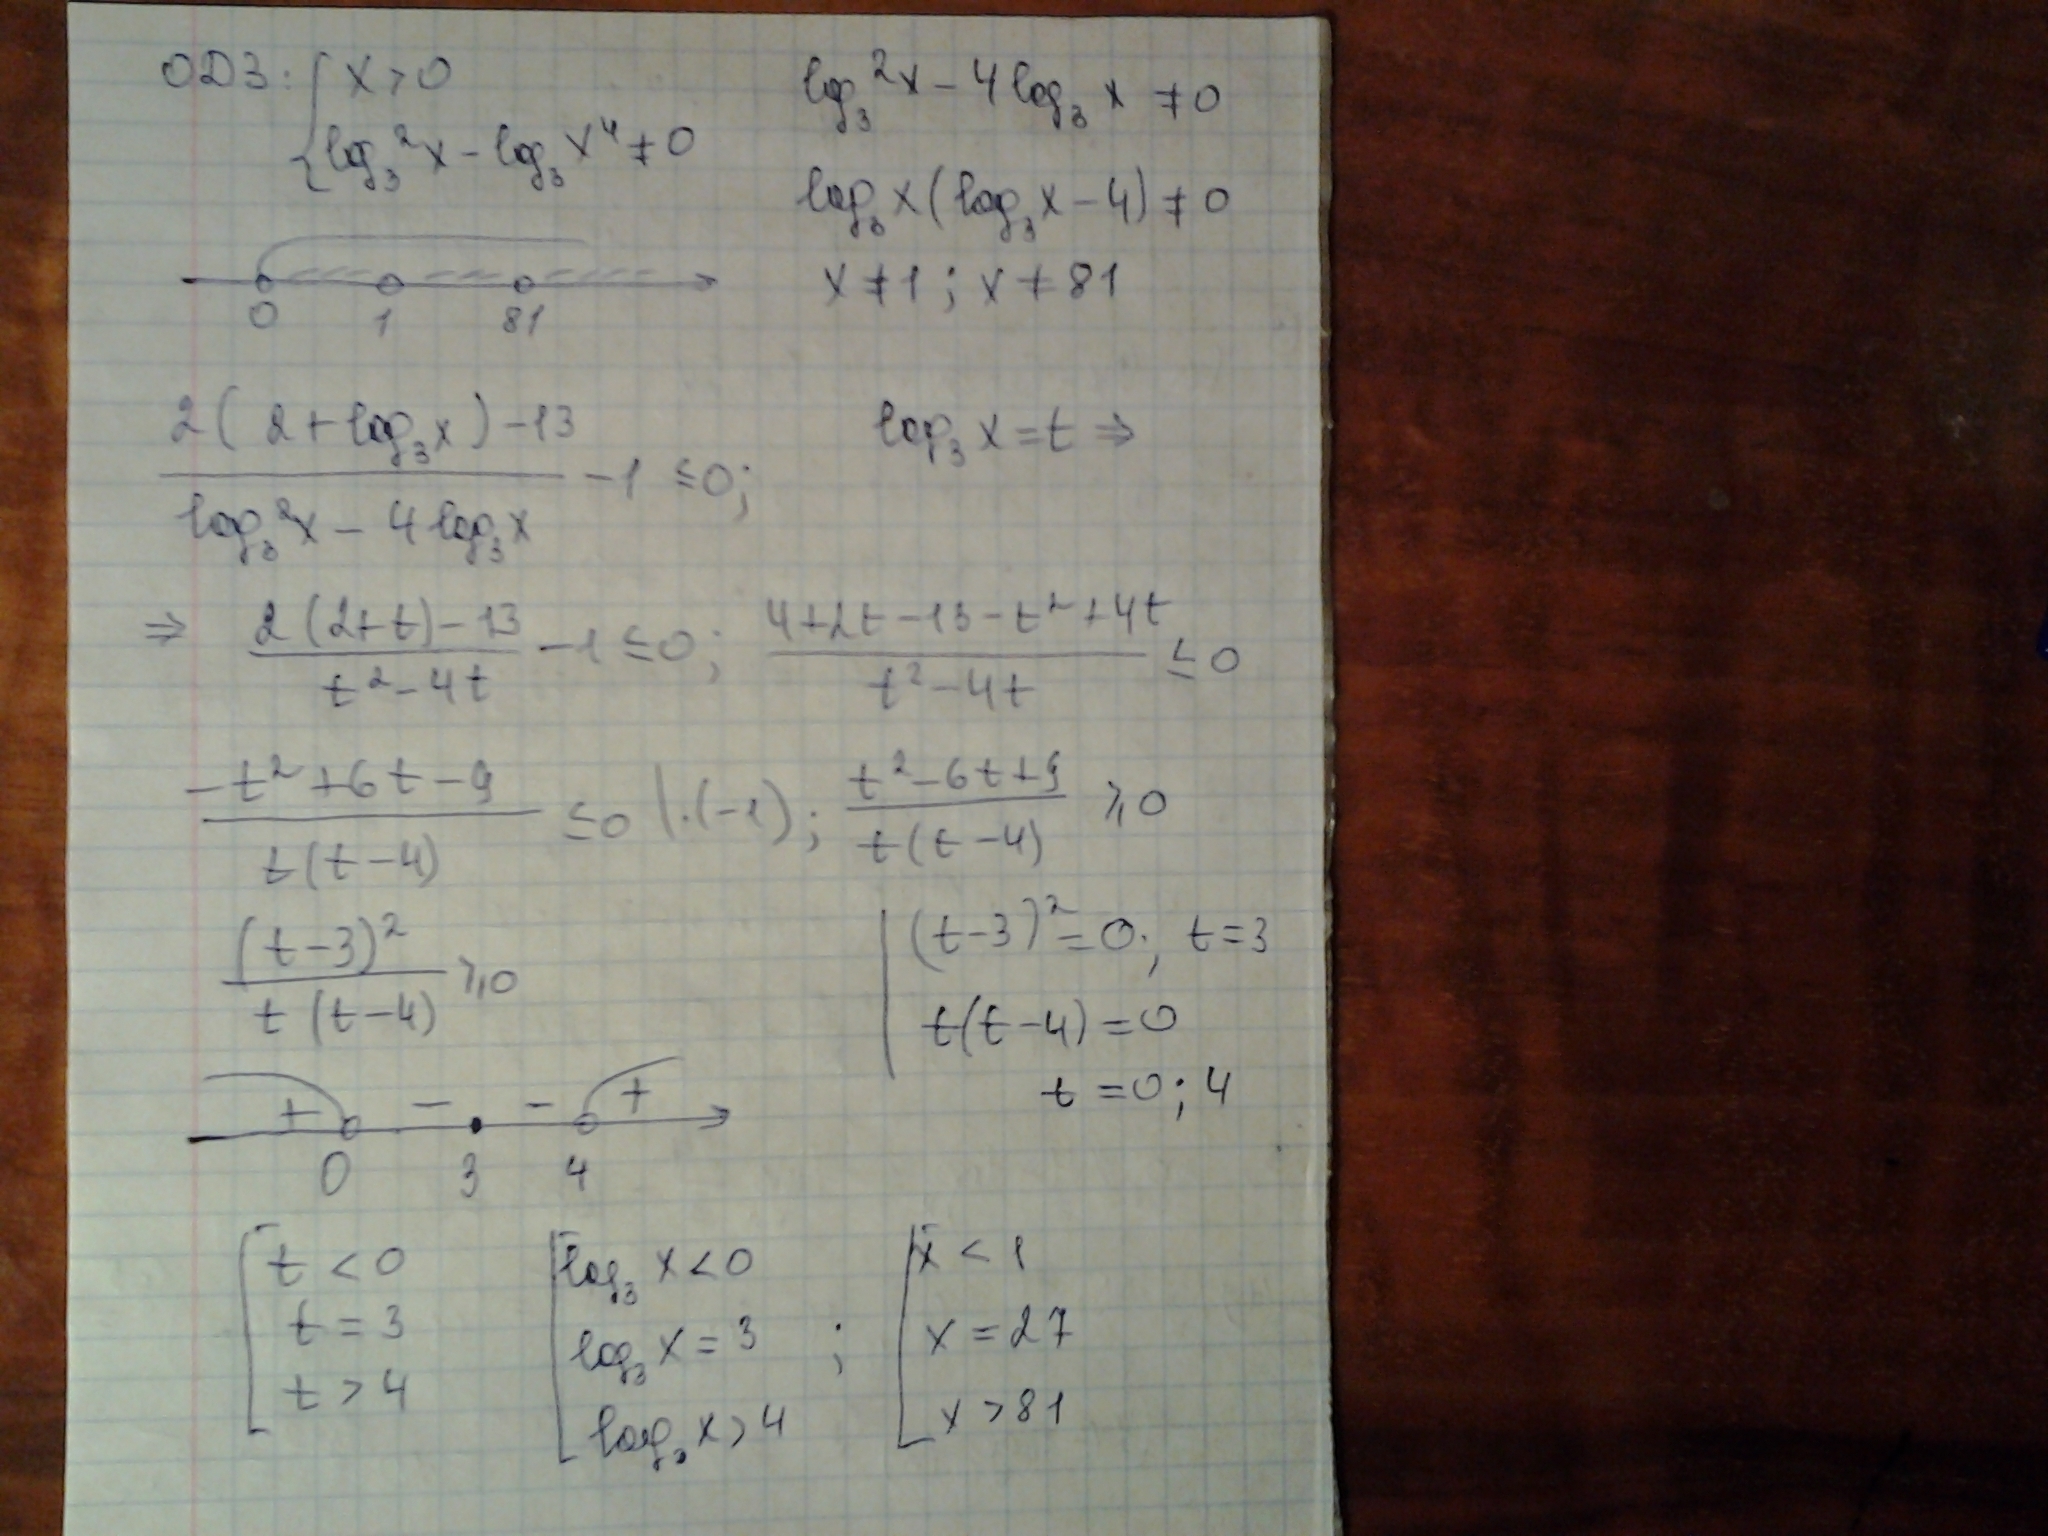 ОДЗ: { x > 0
log₃²x - log₃x⁴ ≠ 0
log₃²x - 4log₃x ≠ 0
log₃x(log₃x - 4) ≠ 0
x ≠ 1; x ≠ 81
0 1 81
(2(2 + log₃x) - 13)/(log₃²x - 4log₃x) - 1 ≤ 0;
log₃x = t ⇒
⇒ (2(2+t) - 13)/(t² - 4t) - 1 ≤ 0; (4+2t-13-t²+4t)/(t² - 4t) ≤ 0
(-t²+6t-9)/(t(t-4)) ≤ 0 |·(-1); (t²-6t+9)/(t(t-4)) ⩾ 0
(t-3)²/(t(t-4)) ⩾ 0
(t-3)² = 0; t = 3
t(t-4) = 0
t = 0; 4
+ - - +
0 3 4
[ t < 0
t = 3
t > 4
[ log₃x < 0
log₃x = 3 ;
log₃x > 4
[ x < 1
x = 27
x > 81